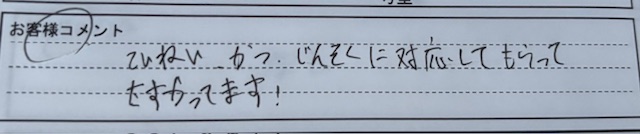 お客様コメント
ていねい かつ.じんそくに対応してもらって
たすかってます!